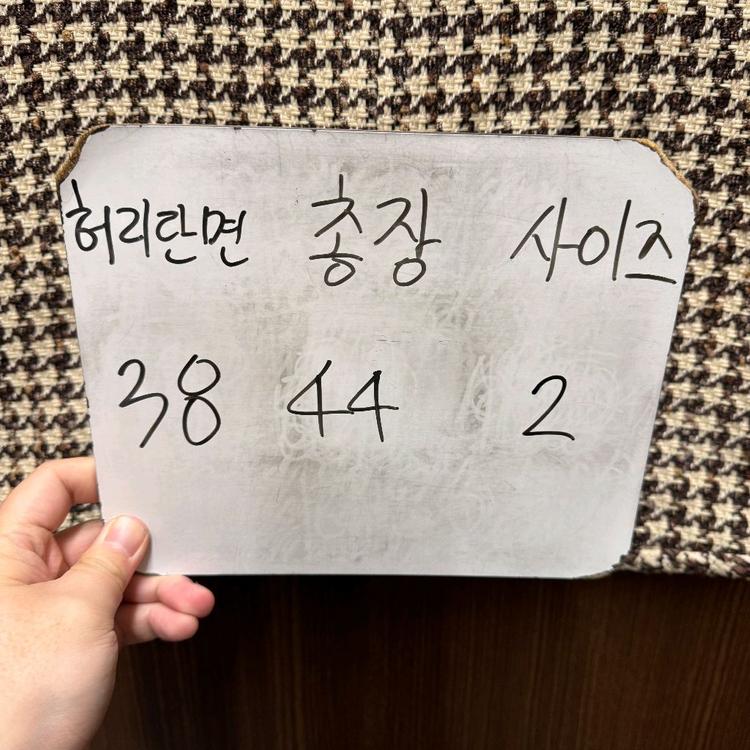 허리단면 총장 사이즈
38 44 2